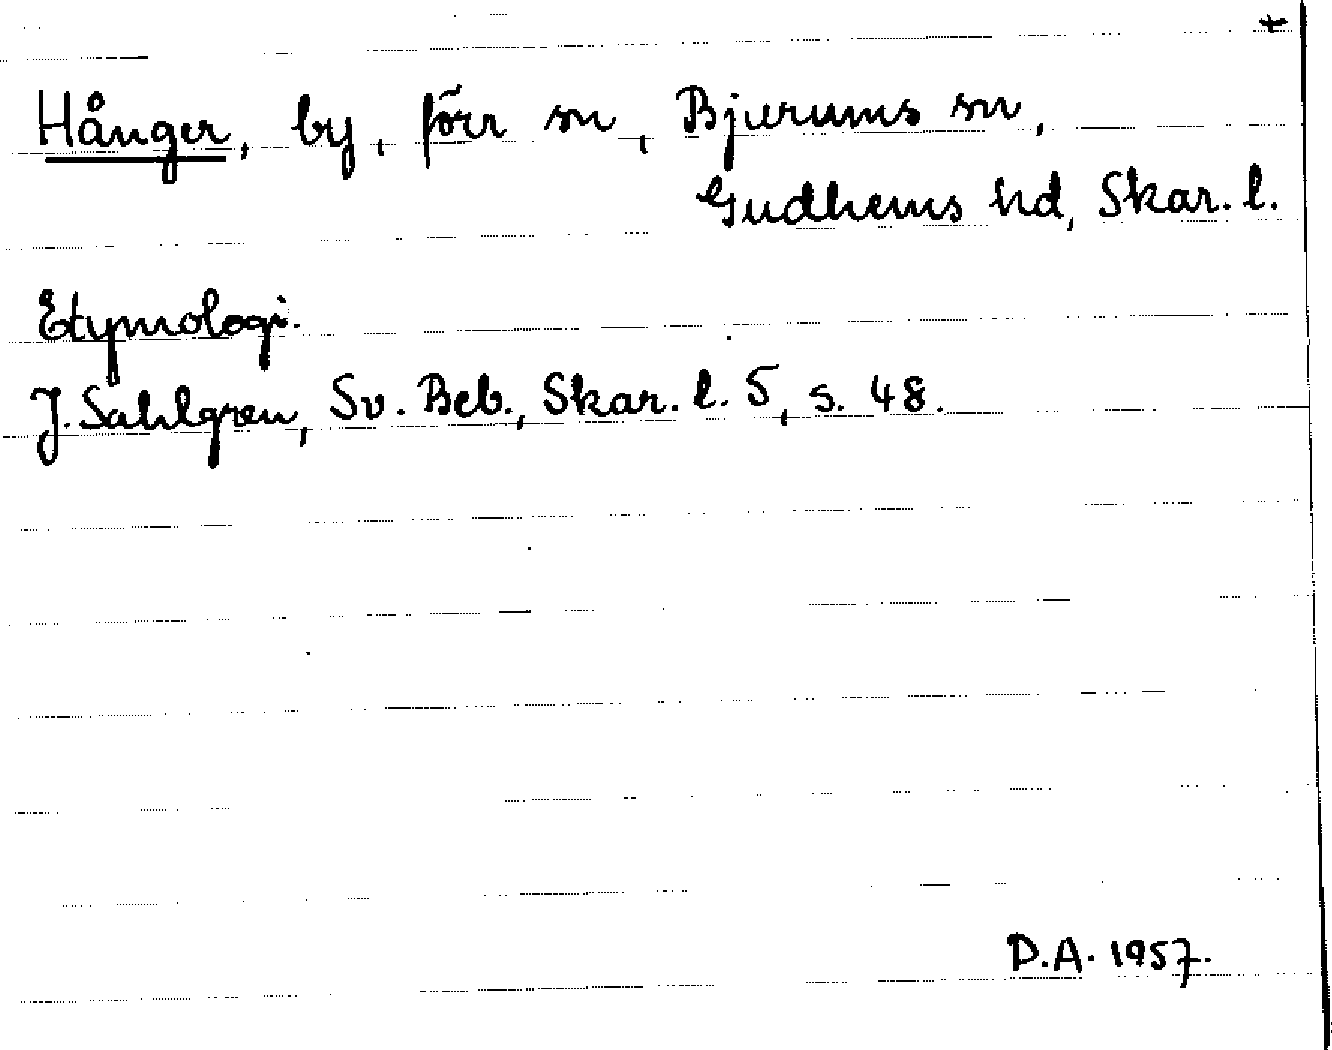 Hånger, by, förr sn, Bjurums sn,
Gudhems hd, Skar. l.
Etymologi.
J. Sahlgren, Sv. Beb., Skar. l. 5, s. 48.
D.A. 1957.